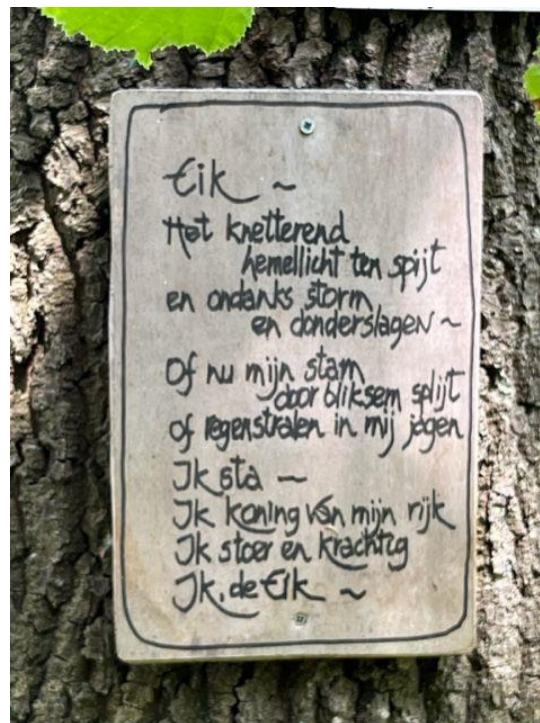 Eik ~
Het knetterend
hemellicht ten spijt
en ondanks storm
en donderslagen ~
Of nu mijn stam
door bliksem splijt
of regenstralen in mij jagen
Ik sta ~
Ik koning van mijn rijk
Ik stoer en krachtig
Ik, de Eik ~